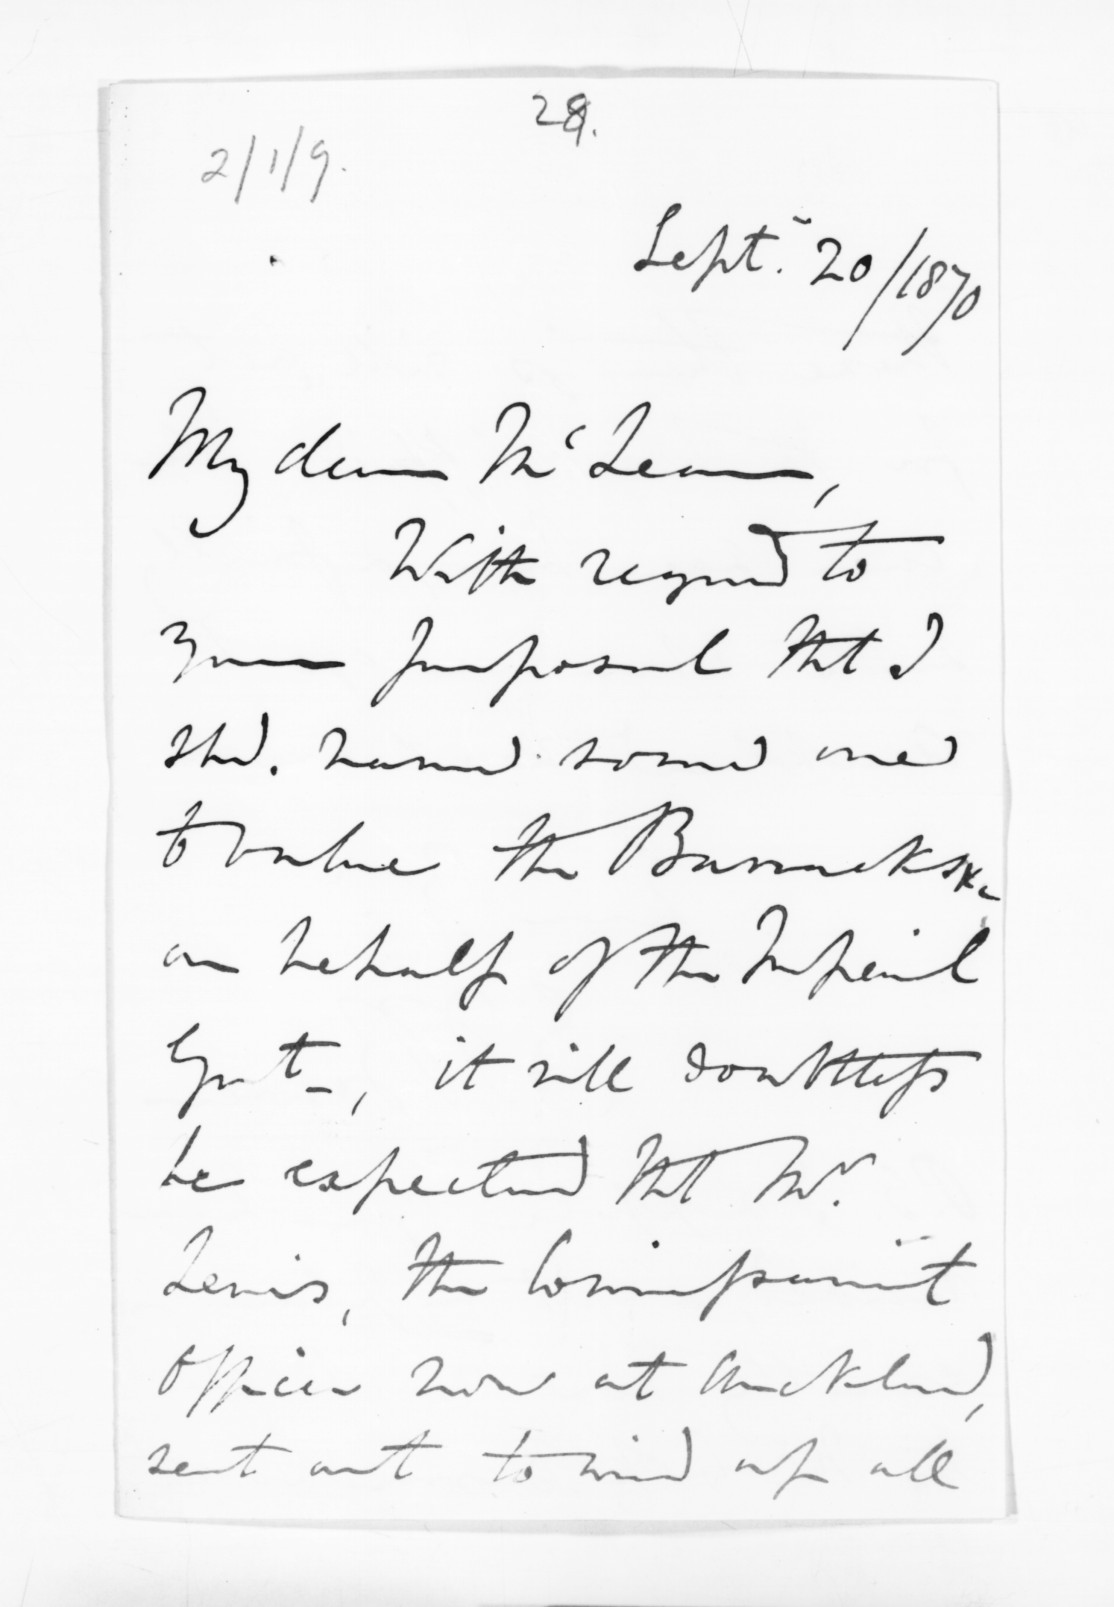 28.
2/1/9.
Sept. 20/1870
My dear McLean,
With regard to
your proposal that I
shd. name some one
to value the Barracks &c
on behalf of the Imperial
Govt_, it will doubtless
be expected that Mr.
Lewis, the Commissariat
Officer now at Auckland,
sent out to wind up all